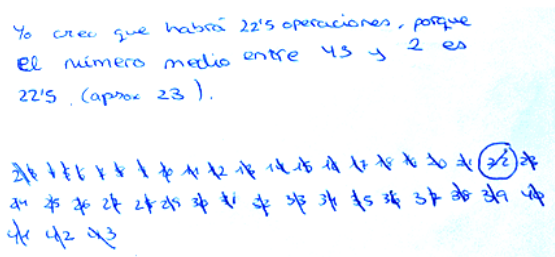 Yo creo que habrá 22'5 operaciones, porque
el número medio entre 43 y 2 es
22'5 (aprox 23).
10 11 12 13 14 15 16 17 18 19 20 21 22 23
24 25 26 27 28 29 30 31 32 33 34 35 36 37 38 39 40
41 42 43